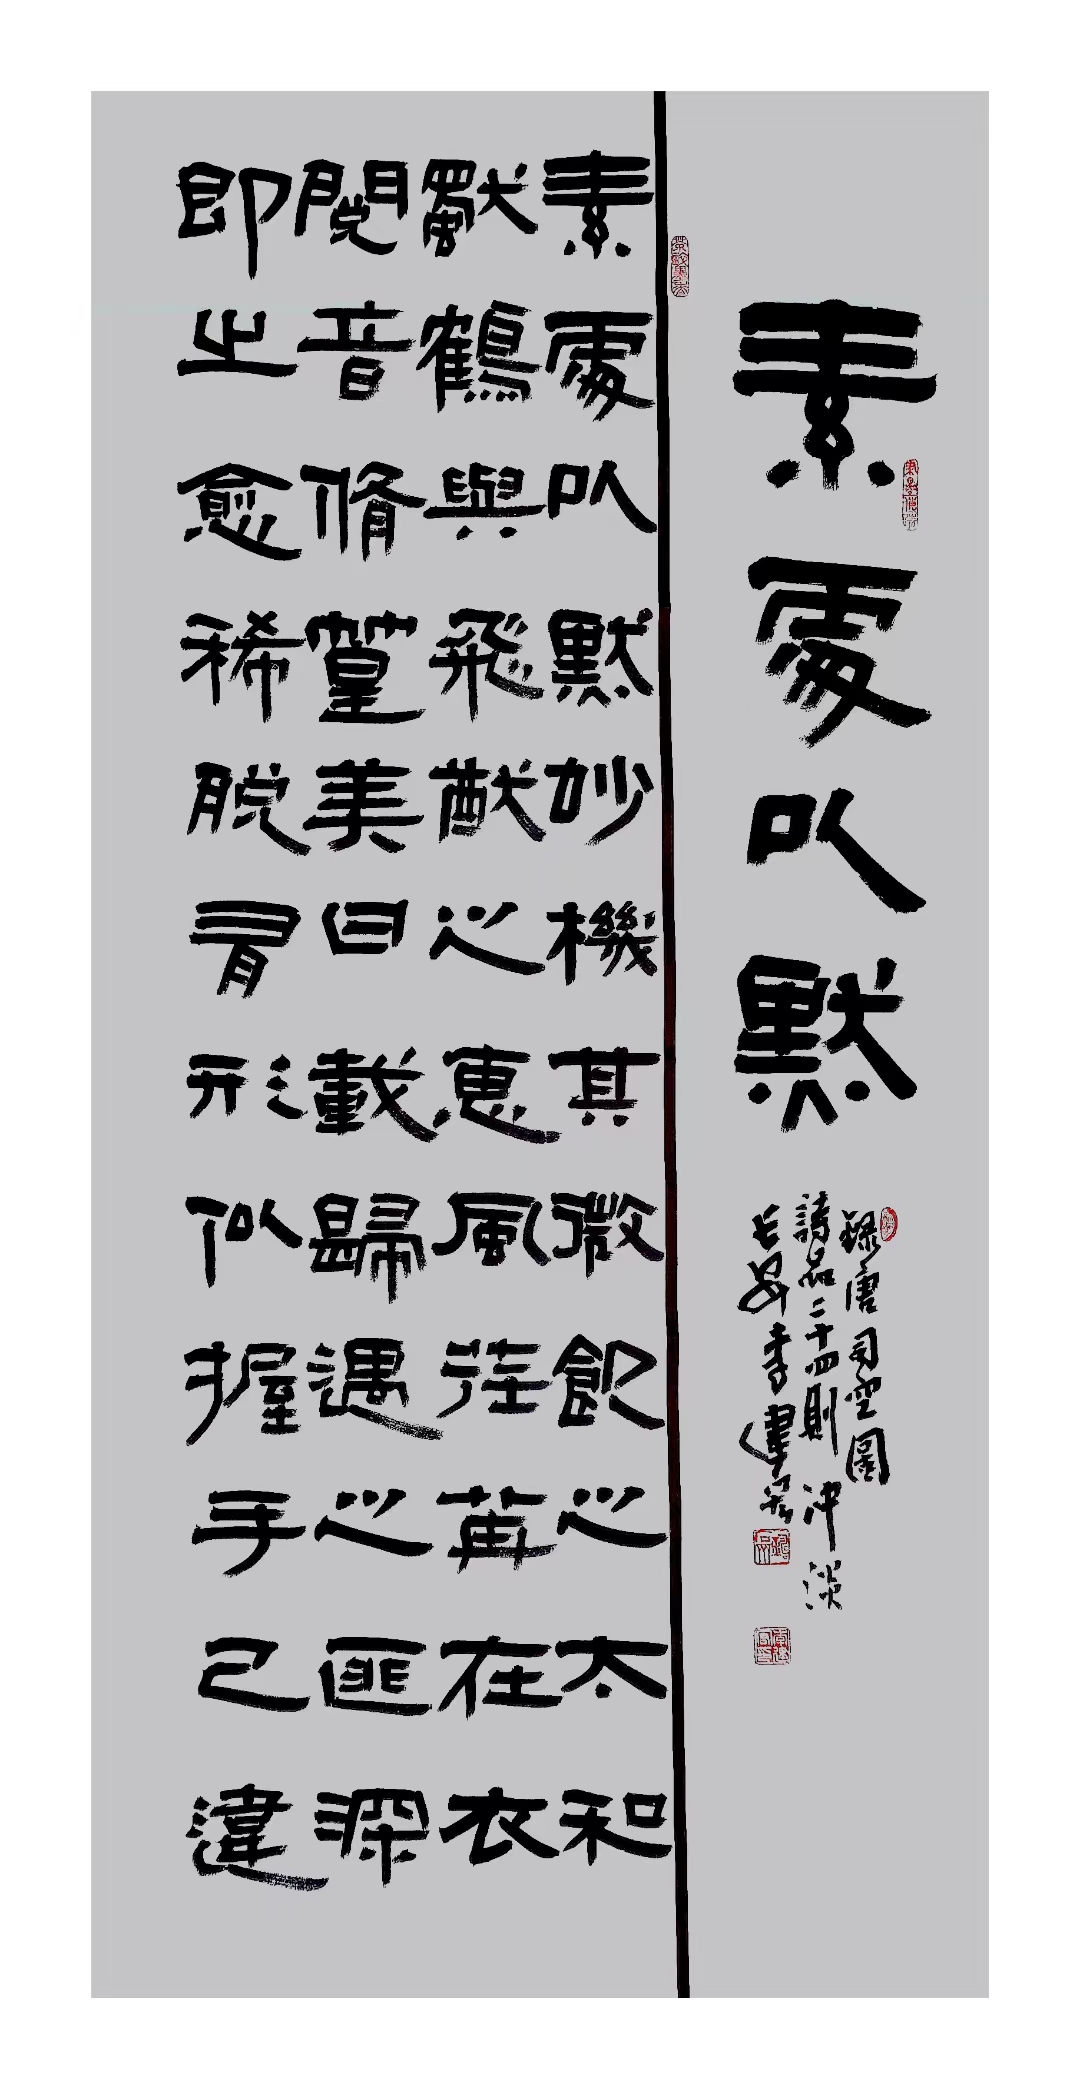 素處以默
錄唐司空圖
詩品二十四則沖淡
長安李建
素處以默妙機其微飲之太和
獨鶴與飛猶之惠風荏苒在衣
閱音脩篁美曰載歸遇之匪深
即之愈稀脫有形似握手已違